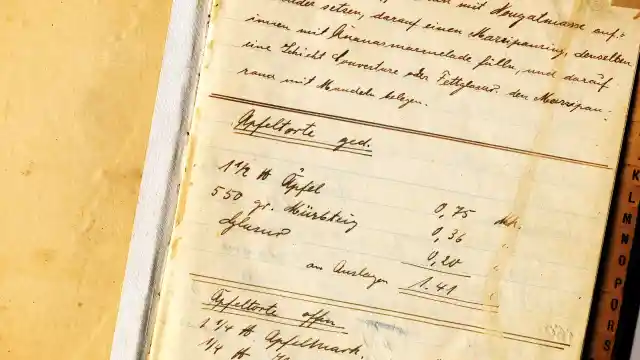 setzen, darauf einen Marzipanring, denselben
innen mit Ananasmarmelade füllen, und darauf
eine Schicht Couverture oder Fettglasur. den Marzipan-
rand mit Mandeln belegen.
Apfeltorte ged.
1 1/2 ℔ Äpfel 0,75 Mk.
550 gr. Mürbteig 0,36 "
Glasur 0,20 "
an Auslagen 1.41 "
Apfeltorte offen
1/4 ℔ Apfelmark.
1/4 ℔
K
L
M
N
O
P
Q
R
S